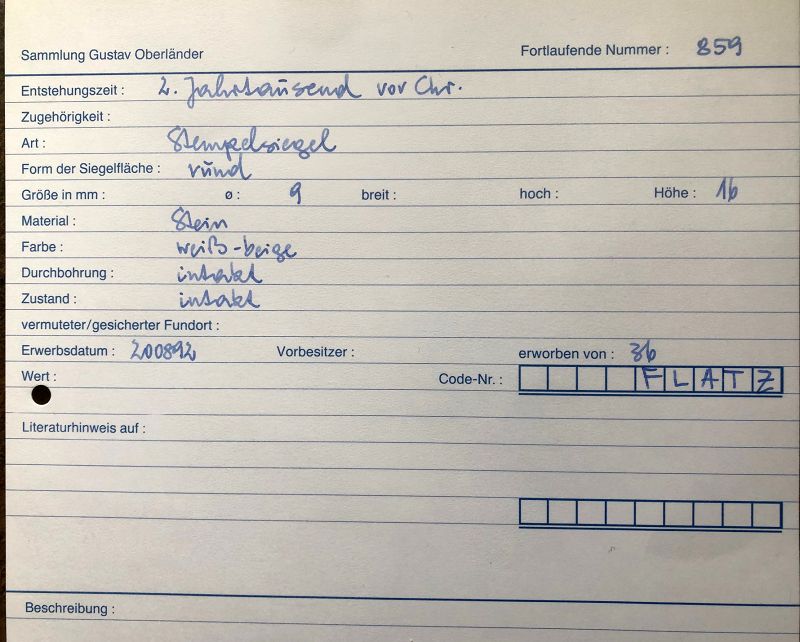 Sammlung Gustav Oberländer Fortlaufende Nummer : 859
Entstehungszeit : 2. Jahrtausend vor Chr.
Zugehörigkeit :
Art : Stempelsiegel
Form der Siegelfläche : rund
Größe in mm : ø : 9 breit : hoch : Höhe : 16
Material : Stein
Farbe : weiß-beige
Durchbohrung : intakt
Zustand : intakt
vermuteter/gesicherter Fundort :
Erwerbsdatum : 200892 Vorbesitzer : erworben von : 36
Wert : Code-Nr. : FLATZ
Literaturhinweis auf :
Beschreibung :